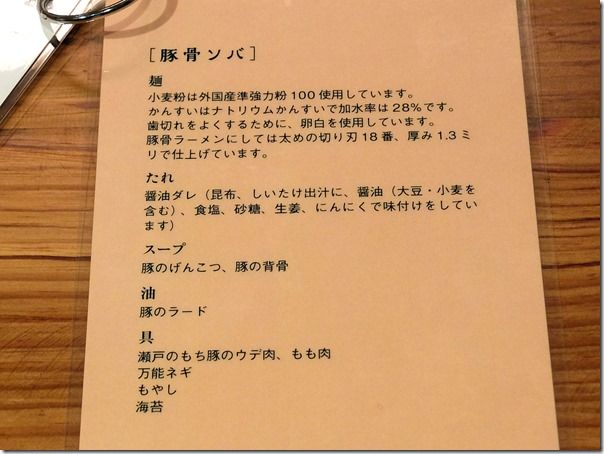 ［豚骨ソバ］
麺
小麦粉は外国産準強力粉100使用しています。
かんすいはナトリウムかんすいで加水率は28％です。
歯切れをよくするために、卵白を使用しています。
豚骨ラーメンにしては太めの切り刃18番、厚み1.3ミ
リで仕上げています。
たれ
醤油ダレ（昆布、しいたけ出汁に、醤油（大豆・小麦を
含む）、食塩、砂糖、生姜、にんにくで味付けをしてい
ます）
スープ
豚のげんこつ、豚の背骨
油
豚のラード
具
瀬戸のもち豚のウデ肉、もも肉
万能ネギ
もやし
海苔